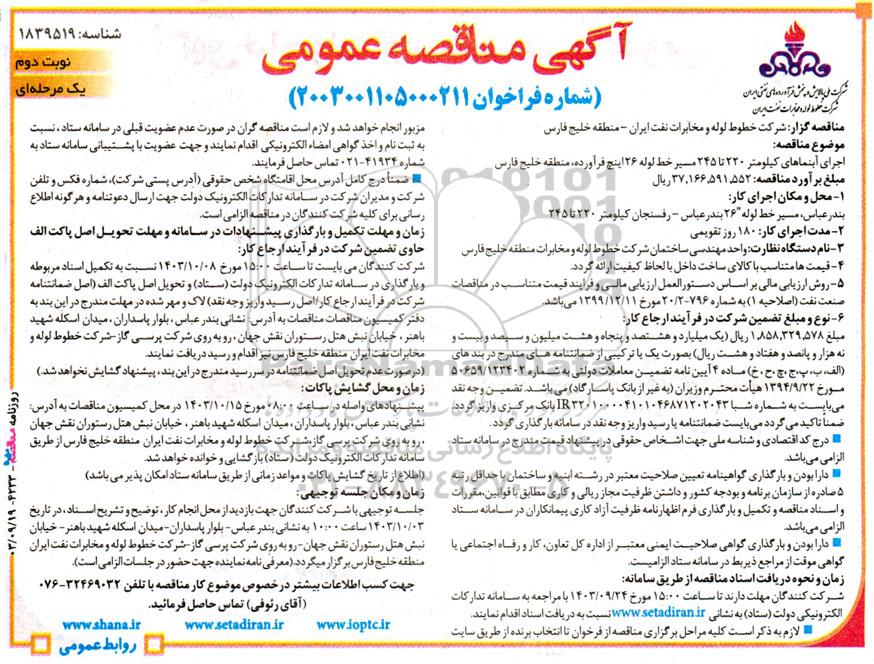 شناسه: ۱۸۳۹۵۱۹
نوبت دوم
یک مرحله‌ای
آگهی مناقصه عمومی
(شماره فراخوان ۲۰۰۳۰۰۱۱۰۵۰۰۰۲۱۱)
شرکت ملی پالایش و پخش فرآورده‌های نفتی ایران
شرکت خطوط لوله و مخابرات نفت ایران
مناقصه گزار: شرکت خطوط لوله و مخابرات نفت ایران - منطقه خلیج فارس
موضوع مناقصه:
اجرای آبنماهای کیلومتر ۲۲۰ تا ۲۴۵ مسیر خط لوله ۲۶ اینچ فرآورده، منطقه خلیج فارس
مبلغ برآورد مناقصه: ۳۷,۱۶۶,۵۹۱,۵۵۲ ریال
۱- محل و مکان اجرای کار:
بندرعباس، مسیر خط لوله "۲۶ بندرعباس - رفسنجان کیلومتر ۲۲۰ تا ۲۴۵
۲- مدت اجرای کار: ۱۸۰ روز تقویمی
۳- نام دستگاه نظارت: واحد مهندسی ساختمان شرکت خطوط لوله و مخابرات منطقه خلیج فارس
۴- قیمت ها متناسب با کالای ساخت داخل با لحاظ کیفیت ارائه گردد.
۵- روش ارزیابی مالی بر اساس دستورالعمل ارزیابی مالی و فرآیند قیمت متناسب در مناقصات
صنعت نفت (اصلاحیه ۱) به شماره ۷۹۶-۲۰/۲ مورخ ۱۳۹۹/۱۲/۱۱ می‌باشد.
۶- نوع و مبلغ تضمین شرکت در فرآیند ارجاع کار:
مبلغ ۱,۸۵۸,۳۲۹,۵۷۸ ریال (یک میلیارد و هشتصد و پنجاه و هشت میلیون و سیصد و بیست و
نه هزار و پانصد و هفتاد و هشت ریال) بصورت یک یا ترکیبی از ضمانتنامه های مندرج در بند های
(الف، ب، پ، ج، چ، ح، خ) ماده ۴ آیین نامه تضمین معاملات دولتی به شماره ۱۲۳۴۰۲/ت۵۰۶۵۹هـ
مورخ ۱۳۹۴/۹/۲۲ هیأت محترم وزیران (به غیر از بانک پاسارگاد) می‌باشد. تضمین وجه نقد
می‌بایست به شماره شبا IR۳۲۰۱۰۰۰۰۴۱۰۱۰۴۶۸۷۱۲۰۲۰۴۳ بانک مرکزی واریز گردد.
ضمناً تاکید می گردد می‌بایست ضمانتنامه یا رسید واریز وجه نقد در سامانه بارگذاری گردد.
درج کد اقتصادی و شناسه ملی جهت اشخاص حقوقی در پیشنهاد قیمت مندرج در سامانه ستاد
الزامی می‌باشد.
دارا بودن و بارگذاری گواهینامه تعیین صلاحیت معتبر در رشته ابنیه و ساختمان با حداقل رتبه
۵ صادره از سازمان برنامه و بودجه کشور و داشتن ظرفیت مجاز ریالی و کاری مطابق با قوانین، مقررات
و اسناد مناقصه و تکمیل و بارگذاری فرم اظهارنامه ظرفیت آزاد کاری پیمانکاران در سامانه ستاد
الزامی می‌باشد.
دارا بودن و بارگذاری گواهی صلاحیت ایمنی معتبر از اداره کل تعاون، کار و رفاه اجتماعی یا
گواهی موقت از مراجع ذیربط در سامانه ستاد الزامیست.
زمان و نحوه دریافت اسناد مناقصه از طریق سامانه:
شرکت کنندگان مهلت دارند تا ساعت ۱۵:۰۰ مورخ ۱۴۰۳/۰۹/۲۴ با مراجعه به سامانه تدارکات
الکترونیکی دولت (ستاد) به نشانی www.setadiran.ir نسبت به دریافت اسناد اقدام نمایند.
لازم به ذکر است کلیه مراحل برگزاری مناقصه از فراخوان تا انتخاب برنده از طریق سایت
مزبور انجام خواهد شد و لازم است مناقصه گران در صورت عدم عضویت قبلی در سامانه ستاد، نسبت
به ثبت نام و اخذ گواهی امضاء الکترونیکی اقدام نمایند و جهت عضویت با پشتیبانی سامانه ستاد به
شماره ۴۱۹۳۴-۰۲۱ تماس حاصل فرمایند.
ضمناً درج کامل آدرس محل اقامتگاه شخص حقوقی (آدرس پستی شرکت)، شماره فکس و تلفن
شرکت و مدیران شرکت در سامانه تدارکات الکترونیک دولت جهت ارسال دعوتنامه و هرگونه اطلاع
رسانی برای کلیه شرکت کنندگان در مناقصه الزامی است.
زمان و مهلت تکمیل و بارگذاری پیشنهادات در سامانه و مهلت تحویل اصل پاکت الف
حاوی تضمین شرکت در فرآیند ارجاع کار:
شرکت کنندگان می بایست تا ساعت ۱۵:۰۰ مورخ ۱۴۰۳/۱۰/۰۸ نسبت به تکمیل اسناد مربوطه
و بارگذاری در سامانه تدارکات الکترونیک دولت (ستاد) و تحویل اصل پاکت الف (اصل ضمانتنامه
شرکت در فرآیند ارجاع کار/اصل رسید واریز وجه نقد) لاک و مهر شده در مهلت مندرج در این بند به
دفتر کمیسیون مناقصات به آدرس: نشانی بندر عباس، بلوار پاسداران، میدان اسکله شهید
باهنر، خیابان نبش هتل رستوران نقش جهان، رو به روی شرکت پرسی گاز- شرکت خطوط لوله و
مخابرات نفت ایران منطقه خلیج فارس نیز اقدام و رسید دریافت نمایند.
(در صورت عدم تحویل اصل ضمانتنامه در سررسید مندرج در این بند، پیشنهاد گشایش نخواهد شد.)
زمان و محل گشایش پاکات:
پیشنهادهای واصله در ساعت ۰۸:۰۰ مورخ ۱۴۰۳/۱۰/۱۵ در محل کمیسیون مناقصات به آدرس:
نشانی بندر عباس، بلوار پاسداران، میدان اسکله شهید باهنر، خیابان نبش هتل رستوران نقش جهان
، رو به روی شرکت پرسی گاز، شرکت خطوط لوله و مخابرات نفت ایران منطقه خلیج فارس از طریق
سامانه تدارکات الکترونیک دولت (ستاد) بازگشایی و خوانده خواهد شد.
(اطلاع از تاریخ گشایش پاکات و مواعد زمانی از طریق سامانه ستاد امکان پذیر می باشد)
زمان و مکان جلسه توجیهی:
جلسه توجیهی با شرکت کنندگان جهت بازدید از محل انجام کار، توضیح و تشریح اسناد، در تاریخ
۱۴۰۳/۱۰/۰۳ ساعت ۱۰:۰۰ به نشانی بندرعباس- بلوار پاسداران- میدان اسکله شهید باهنر- خیابان
نبش هتل رستوران نقش جهان- رو به روی شرکت پرسی گاز- شرکت خطوط لوله و مخابرات نفت ایران
منطقه خلیج فارس برگزار میگردد. (معرفی نامه نماینده جهت حضور در جلسات الزامی است).
جهت کسب اطلاعات بیشتر در خصوص موضوع کار مناقصه با تلفن ۳۲۴۶۹۰۳۲-۰۷۶
(آقای رئوفی) تماس حاصل فرمائید.
www.shana.ir www.setadiran.ir www.ioptc.ir
روابط عمومی
روزنامه مناقصه - ۴۲۳۳ - ۰۳/۰۹/۱۹